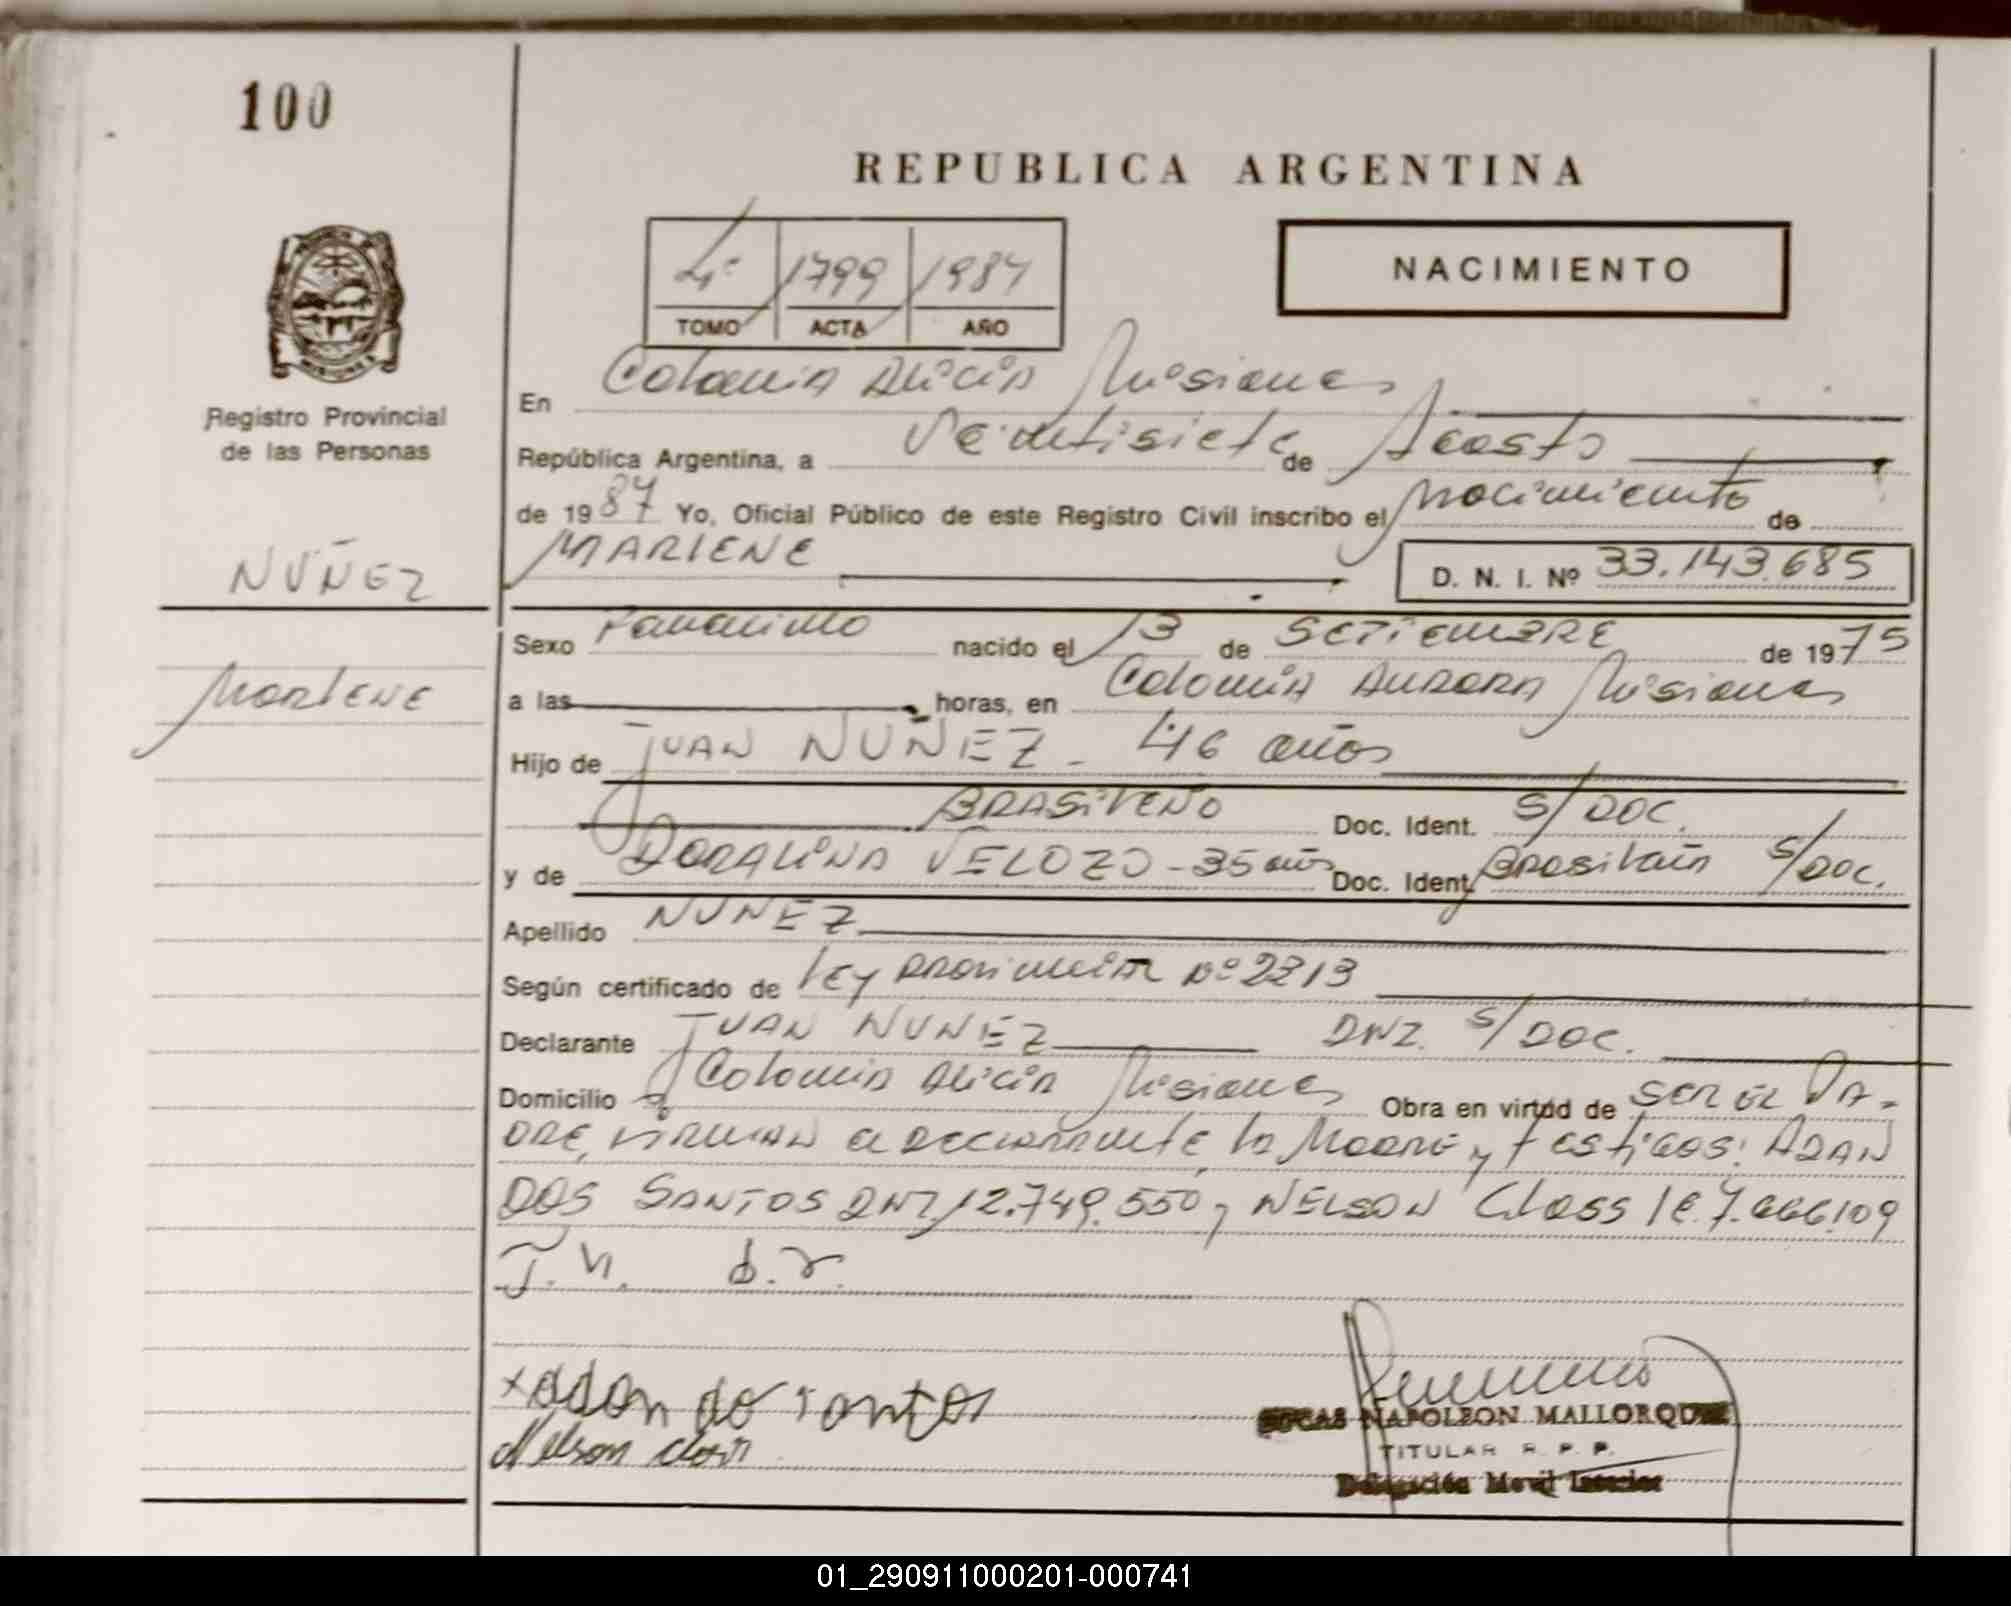 100
REPUBLICA ARGENTINA
4º 1799 1987
TOMO ACTA AÑO
NACIMIENTO
Registro Provincial
de las Personas
En Colonia Alicia Misiones
República Argentina, a Veintisiete de Agosto
de 1987 Yo, Oficial Público de este Registro Civil inscribo el Nacimiento de
MARLENE D. N. I. Nº 33.143.685
NUÑEZ
Marlene
Sexo Femenino nacido el 13 de SETIEMBRE de 1975
a las horas, en Colonia Aurora Misiones
Hijo de JUAN NUÑEZ - 46 años
BRASILEÑO Doc. Ident. S/DOC.
y de DORALINA VELOZO - 35 años Doc. Ident. Brasileña S/DOC.
Apellido NUÑEZ
Según certificado de Ley Provincial Nº 2213
Declarante JUAN NUNEZ DNI. S/DOC.
Domicilio Colonia Alicia Misiones Obra en virtud de SER EL PA-
DRE, FIRMAN el DECLARANTE, la MADRE y testigos: ADAN
DOS SANTOS DNI 12.749.550 y NELSON Closs LE. 7.666.109
J. N. D. V.
x adan do santos
Nelson closs
LUCAS NAPOLEON MALLORQUIN
TITULAR R. P. P.
Delegación Movil Interior
01_290911000201-000741